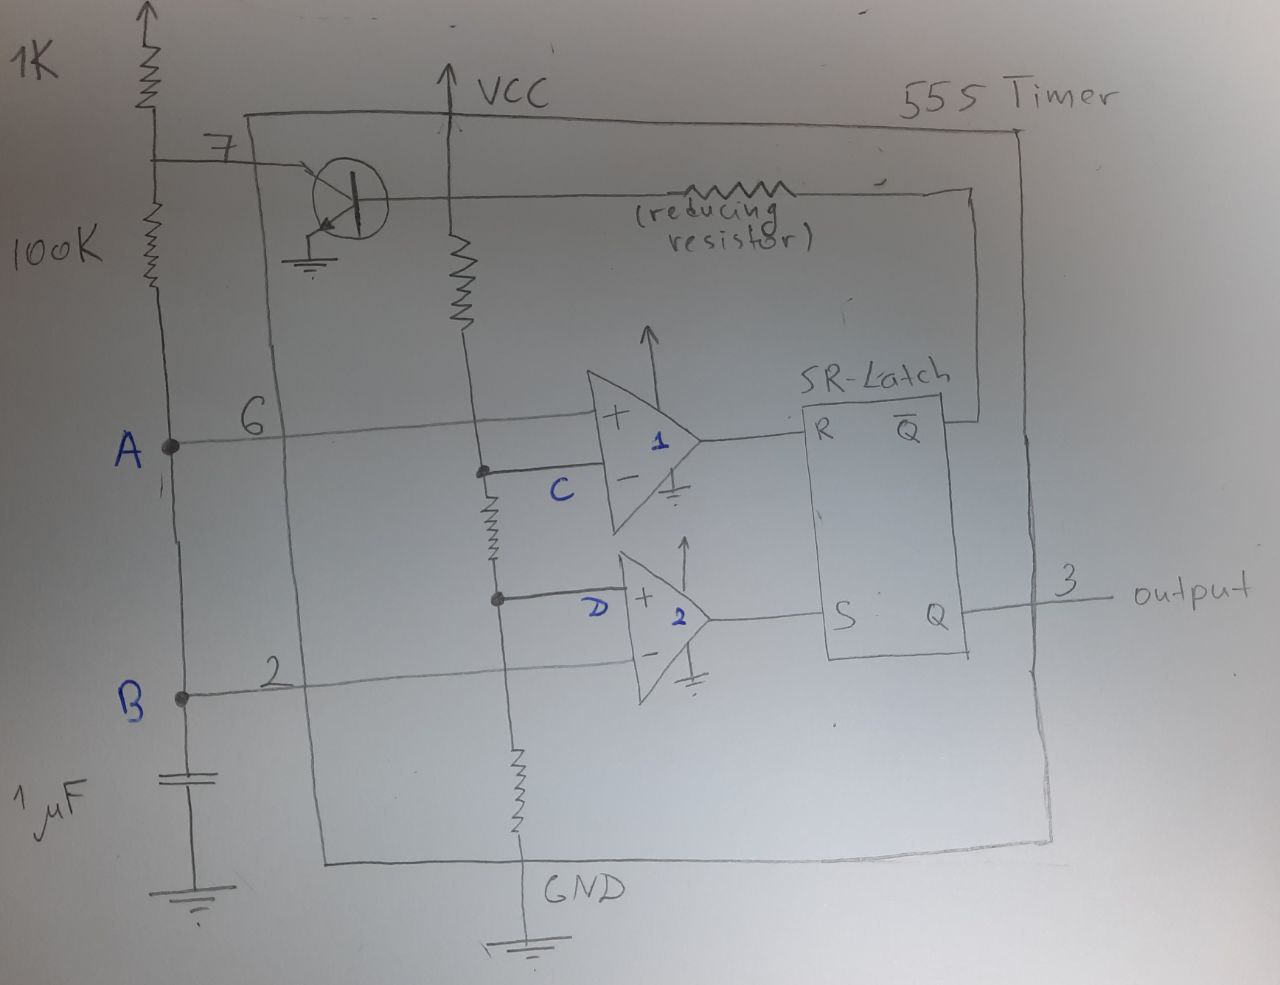 1K
VCC
555 Timer
7
(reducing
resistor)
100K
SR-Latch
6
A
+
1
R
Q̅
C
-
D
+
2
S
Q
3
output
-
2
B
1 µF
GND